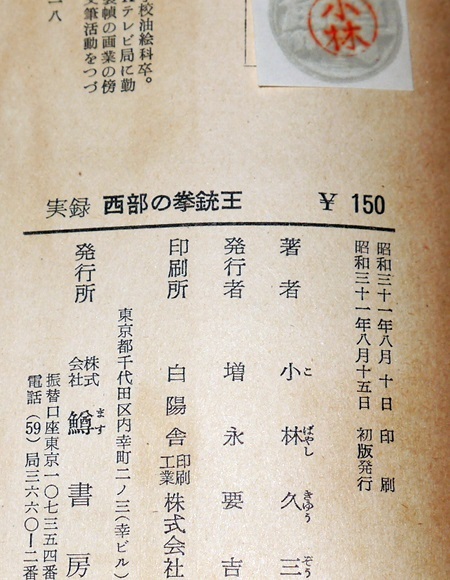 校油絵科卒。
テレビ局に勤
装幀の画業の傍
文筆活動をつづ
一八
小林
実録 西部の拳銃王 ¥150
昭和三十一年八月 十日 印 刷
昭和三十一年八月十五日 初版発行
著者 小林久三
こ ばやし きゆう ぞう
発行者 増永要吉
印刷所 白陽舎印刷工業株式会社
東京都千代田区内幸町二ノ三(幸ビル)
発行所 株式会社 鱒書房
ます
振替口座東京一〇七三五四番
電話(59)局三六六〇ー二番